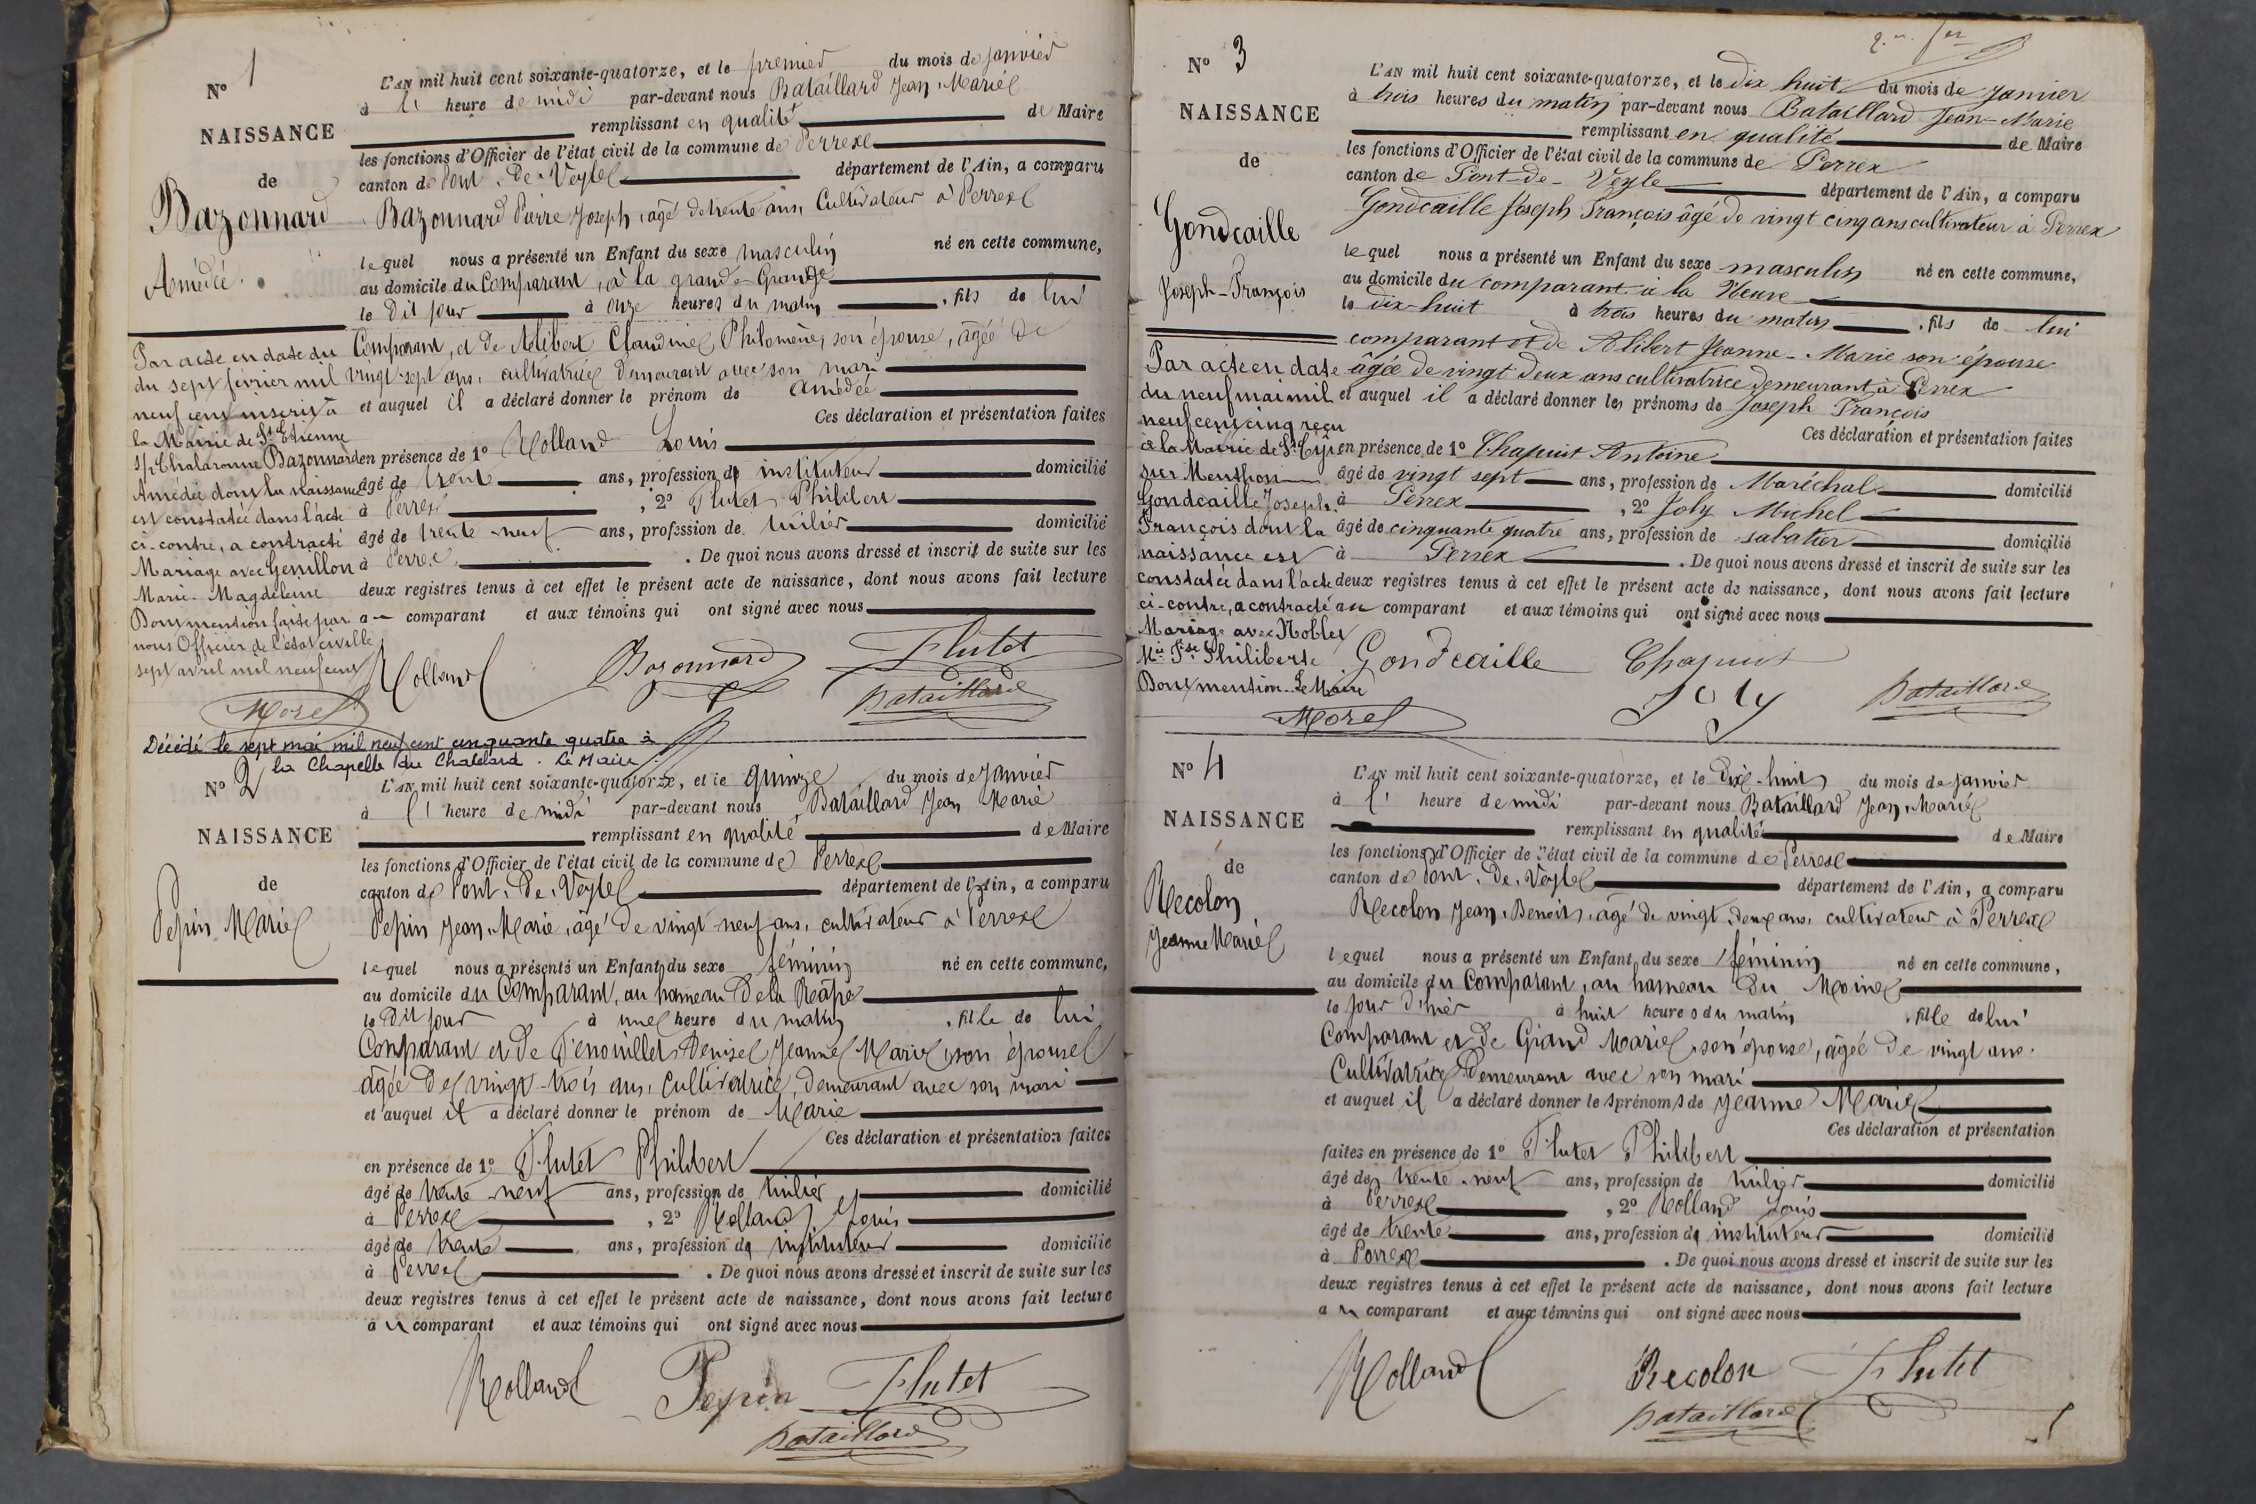 N° 1
NAISSANCE
de
Bazonnard
Amédée
L'AN mil huit cent soixante-quatorze, et le premier du mois de janvier
à l' heure de midi par-devant nous Bataillard Jean Marie
remplissant en qualité de Maire
les fonctions d'Officier de l'état civil de la commune de Perrex
canton de Pont-de-Veyle département de l'Ain, a comparu
Bazonnard Pierre Joseph, âgé de trente ans, Cultivateur à Perrex
lequel nous a présenté un Enfant du sexe masculin né en cette commune,
au domicile du Comparant, à la grande Grange
le dit jour à onze heures du matin, fils de lui
Comparant, et de Alibert Claudine Philomène, son épouse, âgée de
vingt-sept ans, cultivatrice demeurant avec son mari
et auquel il a déclaré donner le prénom de Amédée
Ces déclaration et présentation faites
en présence de 1° Rolland Louis
âgé de trente ans, profession de instituteur domicilié
à Perrex, 2° Flutet Philibert
âgé de trente-neuf ans, profession de tuilier domicilié
à Perrex. De quoi nous avons dressé et inscrit de suite sur les
deux registres tenus à cet effet le présent acte de naissance, dont nous avons fait lecture
au comparant et aux témoins qui ont signé avec nous
Rolland Bazonnard Flutet
Bataillard
Par acte en date du
du sept février mil
neuf cent inscrit à
la Mairie de St Etienne
s/r Chalaronne Bazonnard
Amédée dont la naissance
est constatée dans l'acte
ci-contre, a contracté
Mariage avec Genillon
Marie-Magdeleine
Dont mention faite par
nous Officier de l'état civil le
sept avril mil neuf cent
Morel
Décédé le sept mai mil neuf cent cinquante quatre à
la Chapelle du Chatelard. Le Maire
N° 2
NAISSANCE
de
Pepin Marie
L'AN mil huit cent soixante-quatorze, et le quinze du mois de janvier
à l' heure de midi par-devant nous Bataillard Jean Marie
remplissant en qualité de Maire
les fonctions d'Officier de l'état civil de la commune de Perrex
canton de Pont-de-Veyle département de l'Ain, a comparu
Pepin Jean-Marie, âgé de vingt-neuf ans, cultivateur à Perrex
lequel nous a présenté un Enfant du sexe féminin né en cette commune,
au domicile du Comparant, au hameau de la Râpe
le dit jour à une heure du matin, fille de lui
Comparant et de Penouillet Denise Jeanne Marie, son épouse
âgée de vingt-trois ans, Cultivatrice, demeurant avec son mari
et auquel il a déclaré donner le prénom de Marie
Ces déclaration et présentation faites
en présence de 1° Flutet Philibert
âgé de trente-neuf ans, profession de tuilier domicilié
à Perrex, 2° Rolland Louis
âgé de trente ans, profession de instituteur domicilié
à Perrex. De quoi nous avons dressé et inscrit de suite sur les
deux registres tenus à cet effet le présent acte de naissance, dont nous avons fait lecture
au comparant et aux témoins qui ont signé avec nous
Rolland Pepin Flutet
Bataillard
N° 3
NAISSANCE
de
Gondcaille
Joseph-François
L'AN mil huit cent soixante-quatorze, et le dix huit du mois de janvier
à trois heures du matin par-devant nous Bataillard Jean-Marie
remplissant en qualité de Maire
les fonctions d'Officier de l'état civil de la commune de Perrex
canton de Pont-de-Veyle département de l'Ain, a comparu
Gondcaille Joseph François âgé de vingt cinq ans cultivateur à Perrex
lequel nous a présenté un Enfant du sexe masculin né en cette commune,
au domicile du comparant à la
le dix-huit à trois heures du matin, fils de lui
comparant et de Alibert Jeanne-Marie son épouse
âgée de vingt deux ans cultivatrice demeurant à Perrex
et auquel il a déclaré donner les prénoms de Joseph François
Ces déclaration et présentation faites
en présence de 1° Chapuist Antoine
âgé de vingt sept ans, profession de Maréchal domicilié
à Perrex, 2° Joly Michel
âgé de cinquante quatre ans, profession de sabatier domicilié
à Perrex. De quoi nous avons dressé et inscrit de suite sur les
deux registres tenus à cet effet le présent acte de naissance, dont nous avons fait lecture
au comparant et aux témoins qui ont signé avec nous
Gondcaille Chapuis
Joly Bataillard
Par acte en date
du neuf mai mil
neuf cent cinq reçu
à la Mairie de St Cyr
sur Menthon
Gondcaille Joseph
François dont la
naissance est
constatée dans l'acte
ci-contre, a contracté
Mariage avec Noblet
Mie Fse Philiberte
Dont mention. Le Maire
Morel
N° 4
NAISSANCE
de
Recolon
Jeanne Marie
L'AN mil huit cent soixante-quatorze, et le dix-huit du mois de janvier
à l' heure de midi par-devant nous Bataillard Jean-Marie
remplissant en qualité de Maire
les fonctions d'Officier de l'état civil de la commune de Perrex
canton de Pont-de-Veyle département de l'Ain, a comparu
Recolon Jean-Benoit, âgé de vingt-deux ans, cultivateur à Perrex
lequel nous a présenté un Enfant du sexe féminin né en cette commune,
au domicile du Comparant, au hameau du Moine
le jour d'hier à huit heures du matin, fille de lui
Comparant et de Giand Marie, son épouse, âgée de vingt ans,
Cultivatrice demeurant avec son mari
et auquel il a déclaré donner les prénoms de Jeanne Marie
Ces déclaration et présentation
faites en présence de 1° Flutet Philibert
âgé de trente-neuf ans, profession de tuilier domicilié
à Perrex, 2° Rolland Louis
âgé de trente ans, profession de instituteur domicilié
à Perrex. De quoi nous avons dressé et inscrit de suite sur les
deux registres tenus à cet effet le présent acte de naissance, dont nous avons fait lecture
au comparant et aux témoins qui ont signé avec nous
Rolland Recolon Flutet
Bataillard